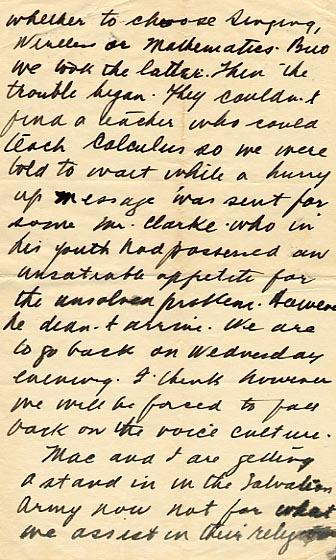 whether to choose Singing,
Wireless or Mathematics. But
we took the latter. Then the
trouble began. They couldn't
find a teacher who could
teach Calculus so we were
told to wait while a hurry
up message was sent for
some Mr. Clarke who in
his youth had possessed an
insatiable appetite for
the unsolved problem. However
he didn't arrive. We are
to go back on Wednesday
evening. I think however
we will be forced to fall
back on the voice culture.
Mac and I are getting
a stand in in the Salvation
Army now not for what
we assist in their religious